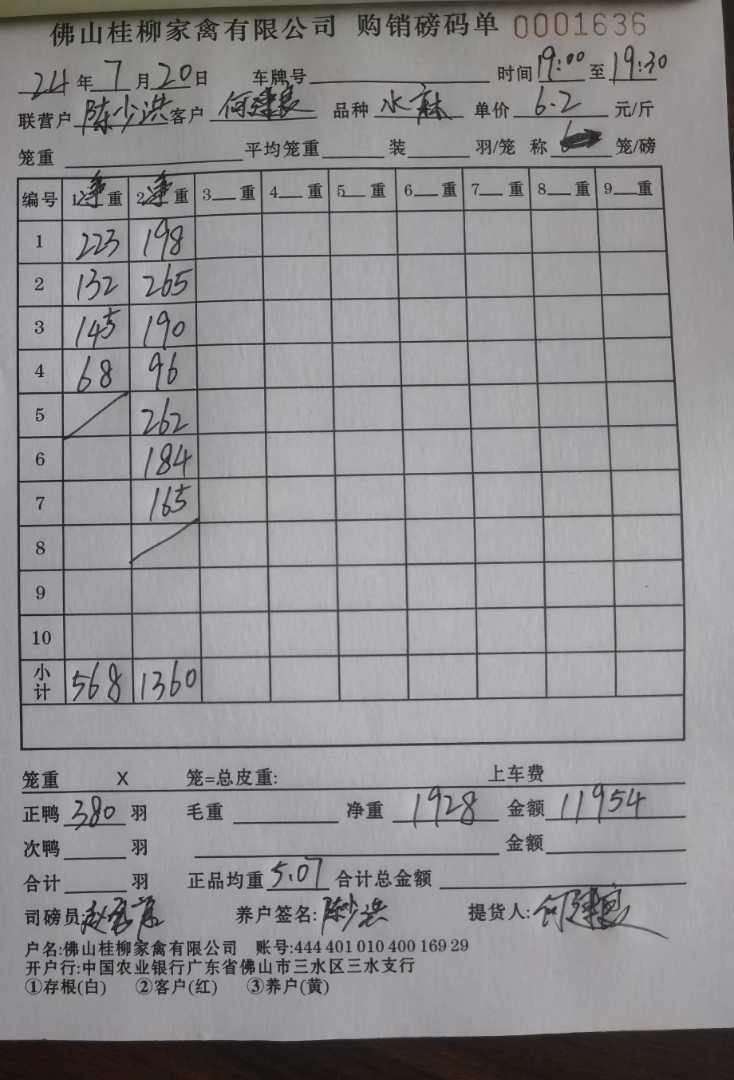 佛山桂柳家禽有限公司 购销磅码单 0001636
24年7月20日 车牌号 时间19:00至19:30
联营户 陈少洪 客户 何建良 品种 水 单价 6.2 元/斤
笼重 平均笼重 装 羽/笼 称 笼/磅
编号 1净重 2净重 3 重 4 重 5 重 6 重 7 重 8 重 9 重
1 223 198
2 132 265
3 145 190
4 68 96
5 262
6 184
7 165
8
9
10
小计 568 1360
笼重 X 笼=总皮重: 上车费
正鸭 380 羽 毛重 净重 1928 金额 11954
次鸭 羽 金额
合计 羽 正品均重 5.07 合计总金额
司磅员: 养户签名: 陈少洪 提货人: 何建良
户名:佛山桂柳家禽有限公司 账号:444 401 010 400 169 29
开户行:中国农业银行广东省佛山市三水区三水支行
①存根(白) ②客户(红) ③养户(黄)